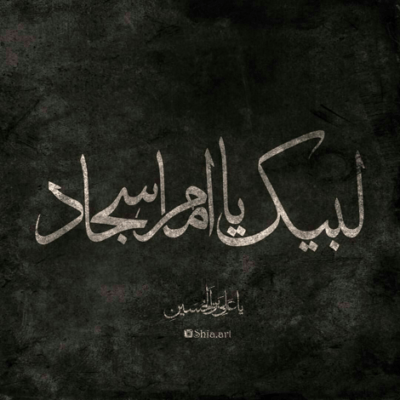 لبیک یا امام سجاد
یا علی بن الحسین
Shia.art